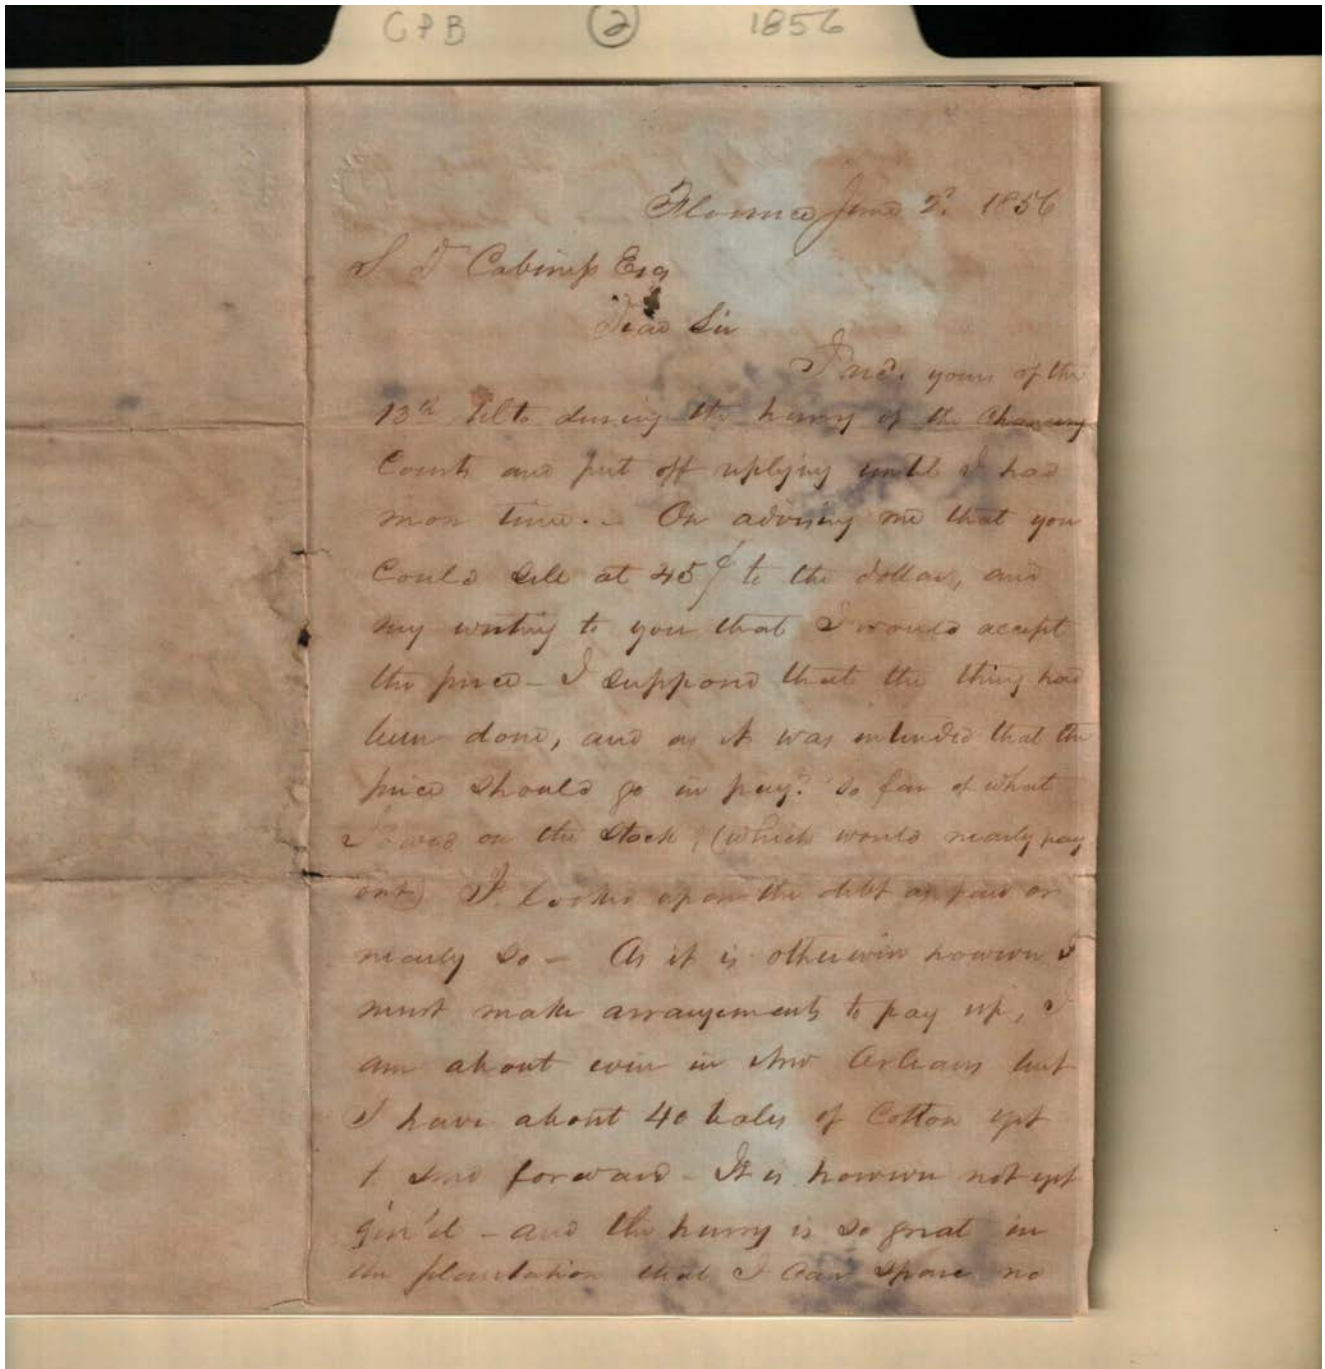 CPB 2 1856
Florence June 2d. 1856
S D Cabiness Esq
Dear Sir
I recd. yours of the
13th Ulto during the hurry of the Chancery
Court and put off replying until I had
more time. - On advising me that you
could sell at 45¢ to the dollar, and
my writing to you that I would accept
the price - I supposed that the thing had
been done, and as it was intended that the
price should go in payt. so far of what
I owed on the stock, (which would nearly pay
out) I looked upon the debt as paid or
nearly so - As it is otherwise however I
must make arrangements to pay up, I
am about even in New Orleans but
I have about 40 bales of Cotton yet
to send forward - It is however not yet
gin'd - and the hurry is so great in
the plantation that I can spare no